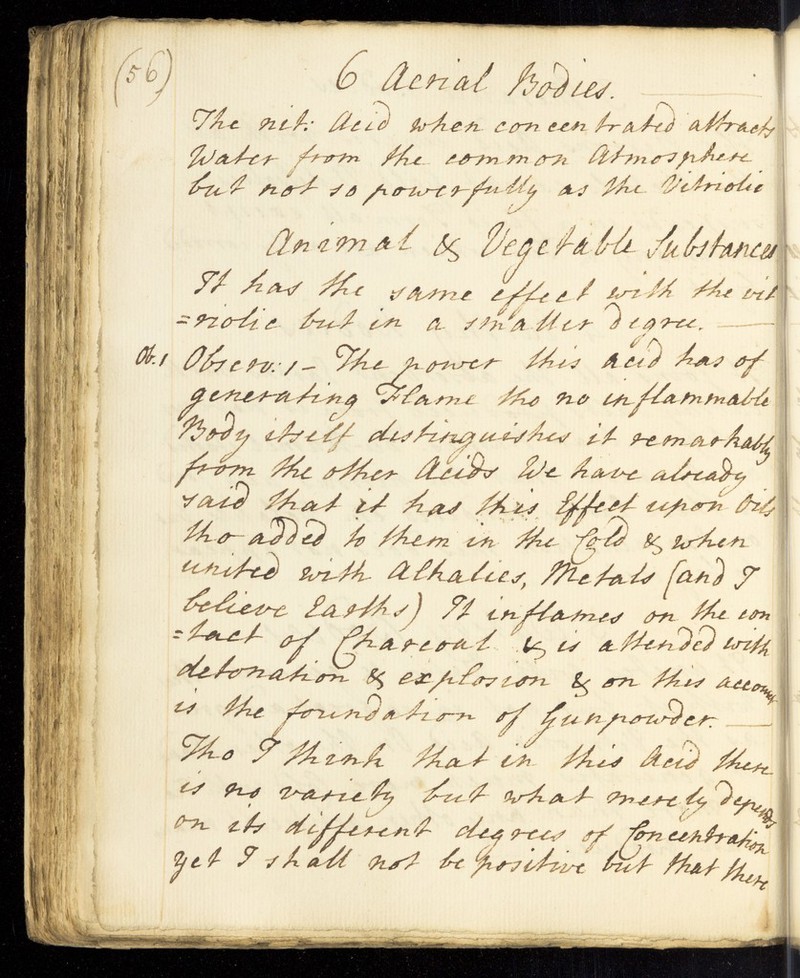 (56)
6 Aerial Bodies.
The nit: Acid when concentrated attracts
Water from the common Atmosphere
but not so powerfully as the Vitriolic
Animal & Vegetable Substances
It has the same effect with the vit
=riolic but in a smaller degree.
Ob. 1 Observ: 1 - The power this acid has of
generating Flame tho no inflammable
Body itself distinguishes it remarkably
from the other Acids We have already
said that it has this Effect upon Oils
tho added to them in the Cold & when
united with Alkalies, Metals (and I
believe Earths) It inflames on the con
=tact of Charcoal & is attended with
detonation & explosion & on this account
is the foundation of Gunpowder.
Tho I think that in this Acid there
is no variety but what merely depends
on its different degrees of Concentration
yet I shall not be positive but that there